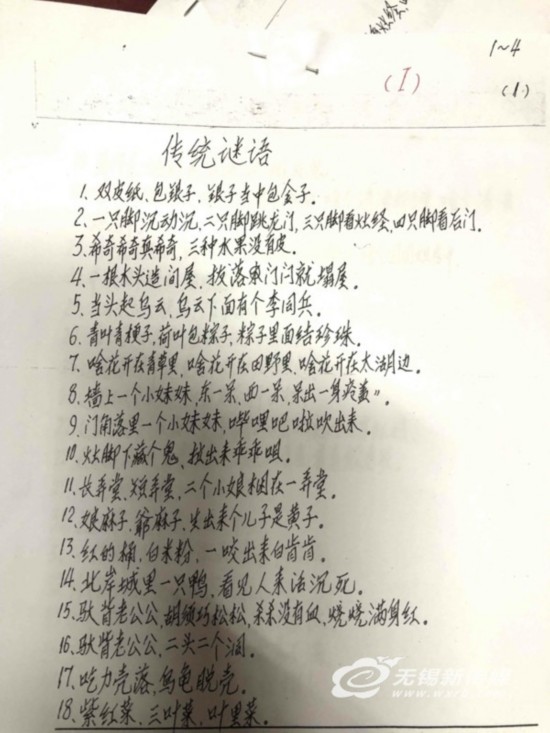 1~4
(I)
(1.)
传统谜语
1、双皮纸、包银子、银子当中包金子。
2、一只脚沉动沉,二只脚跳龙门,三只脚看灶经,四只脚看后门。
3、希奇希奇真希奇,三种水果没有皮。
4、一根木头造间屋,拔落串门门就塌屋。
5、当头起乌云,乌云下面有个李同兵。
6、青叶青梗子,荷叶包粽子,粽子里面结珍珠。
7、啥花开在青草里、啥花开在田野里、啥花开在太湖边。
8、墙上一个小妹妹、东一呆、西一呆,呆出一身
9、门角落里一个小妹妹、哔哩吧啦吹出来。
10、灶脚下藏个鬼、拔出来乖乖咀。
11、长弄堂、短弄堂、二个小娘相在一弄堂。
12、娘麻子、爷麻子、生出来个儿子是黄子。
13、红的桶、白米粉、一咬出来白肯肯。
14、北岸城里一只鸭、看见人来活沉死。
15、驮背老公公,胡须巧松松,杀杀没有血、烧烧满身红。
16、驮背老公公,二头二个洞。
17、吃力壳落、乌龟脱壳。
18、紫红菜、三叶菜、叶里菜。
无锡新传媒